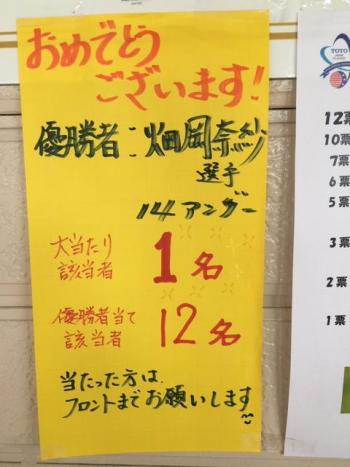 おめでとう
ございます!
優勝者:畑岡奈紗
選手
14アンダー
大当たり
該当者
1名
優勝者当て
該当者
12名
当たった方は、
フロントまでお願いします
TOTO
12票
10票
7票
6票
5票
3票
2票
1票